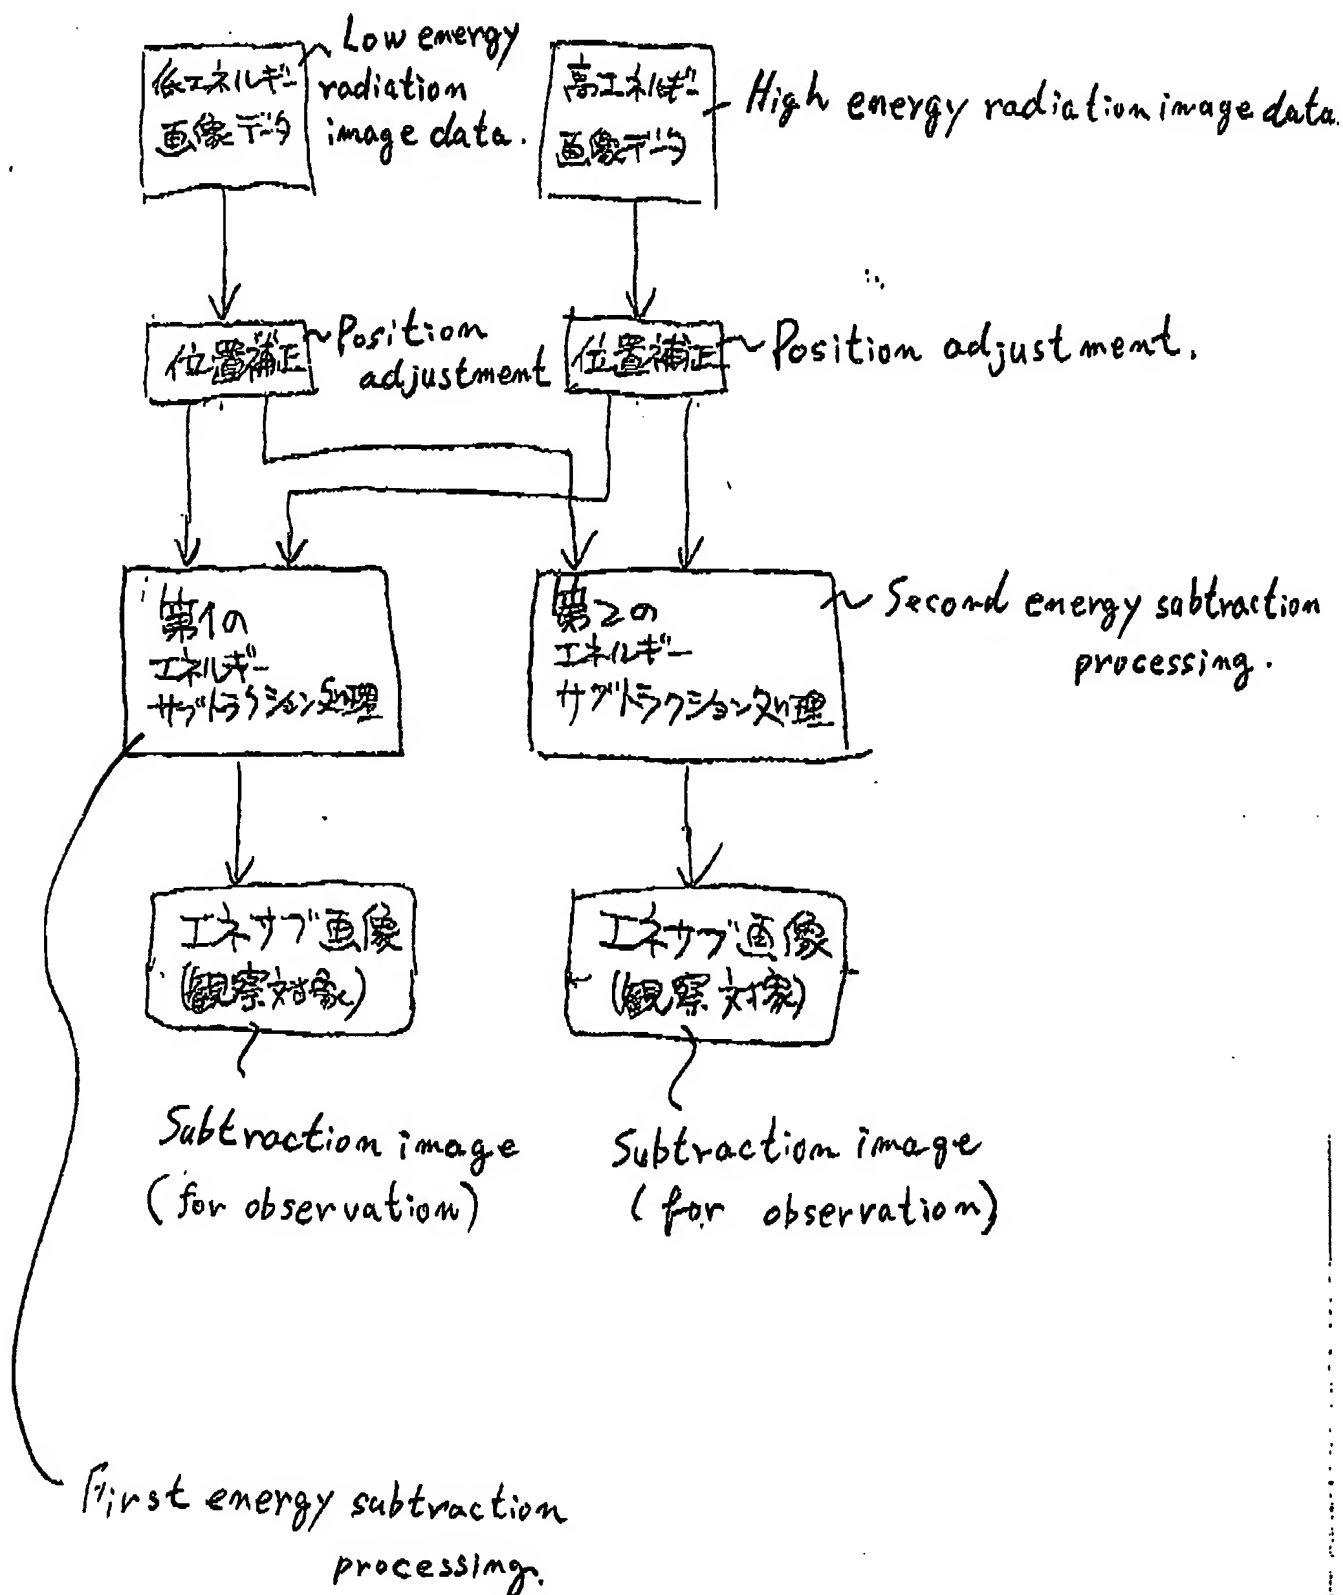 低エネルギー
画像データ
Low energy
radiation
image data.
高エネルギー
画像データ
High energy radiation image data.
位置補正
Position
adjustment
位置補正
Position adjustment.
第1の
エネルギー
サブトラクション処理
第2の
エネルギー
サブトラクション処理
Second energy subtraction
processing.
エネサブ画像
(観察対象)
エネサブ画像
(観察対象)
Subtraction image
(for observation)
Subtraction image
(for observation)
First energy subtraction
processing.